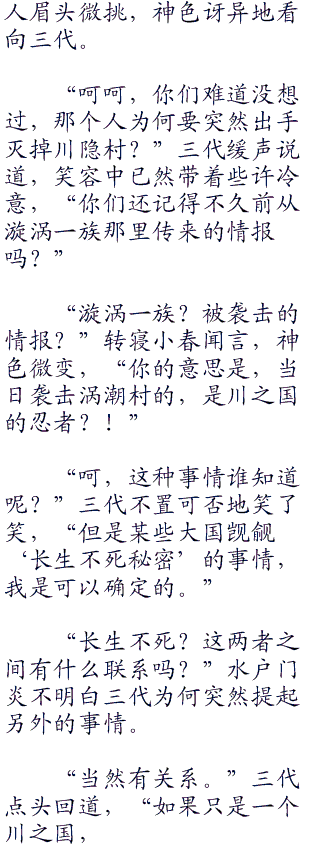 人眉头微挑，神色讶异地看
向三代。
“呵呵，你们难道没想
过，那个人为何要突然出手
灭掉川隐村？”三代缓声说
道，笑容中已然带着些许冷
意，“你们还记得不久前从
漩涡一族那里传来的情报
吗？”
“漩涡一族？被袭击的
情报？”转寝小春闻言，神
色微变，“你的意思是，当
日袭击涡潮村的，是川之国
的忍者？！”
“呵，这种事情谁知道
呢？”三代不置可否地笑了
笑，“但是某些大国觊觎
‘长生不死秘密’的事情，
我是可以确定的。”
“长生不死？这两者之
间有什么联系吗？”水户门
炎不明白三代为何突然提起
另外的事情。
“当然有关系。”三代
点头回道，“如果只是一个
川之国，